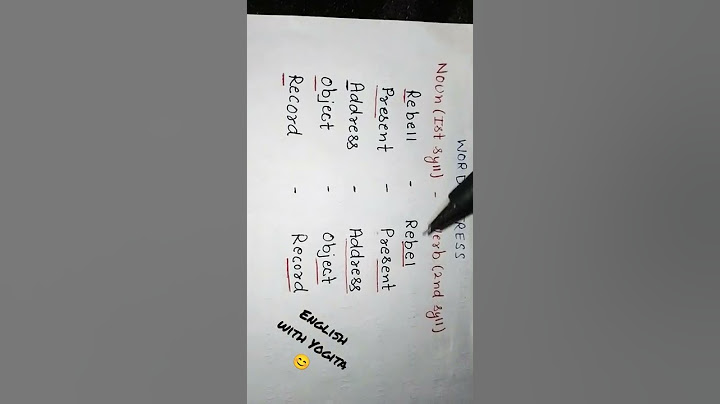 WORD RESS
Noun (Ist syll) - erb (2nd syll)
Rebell - Rebel
Present - Present
Address - Address
Object - Object
Record - Record
ENGLISH
WITH YOGITA